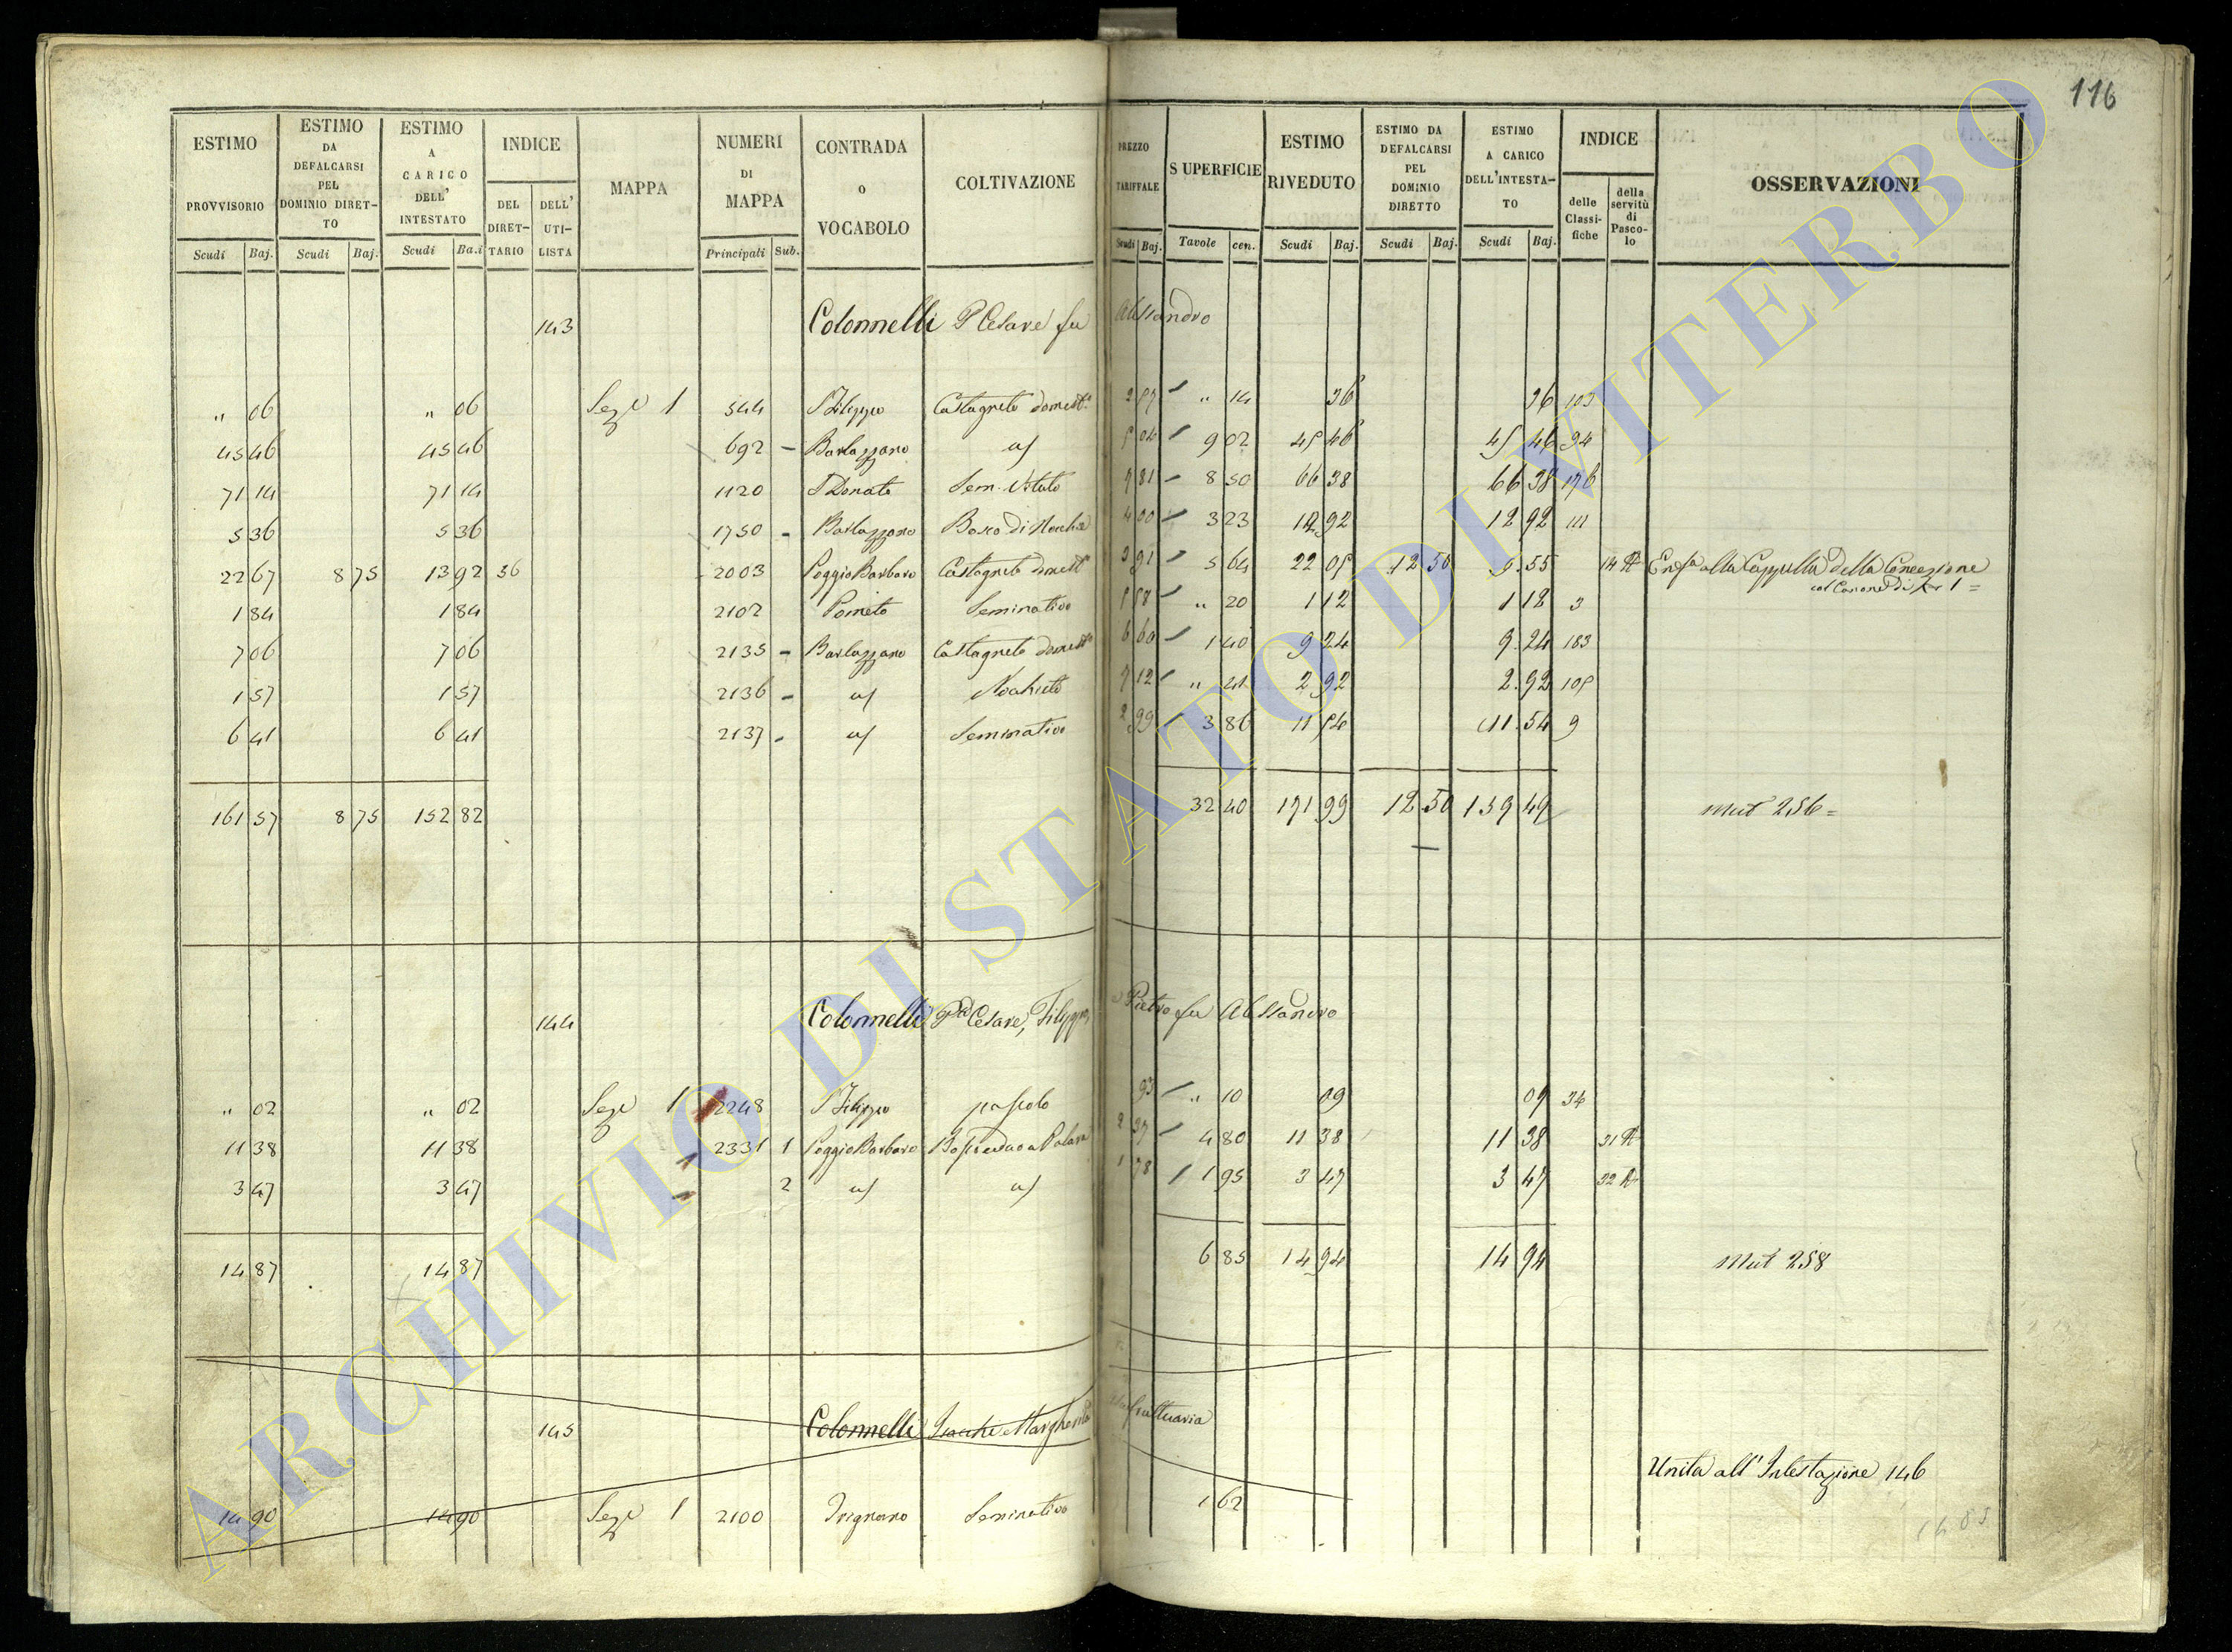 116
ESTIMO PROVVISORIO Scudi Baj.
ESTIMO DA DEFALCARSI PEL DOMINIO DIRETTO Scudi Baj.
ESTIMO A CARICO DELL' INTESTATO Scudi Ba.i
INDICE DEL DIRETTARIO DELL' UTILISTA
MAPPA
NUMERI DI MAPPA Principali Sub.
CONTRADA o VOCABOLO
COLTIVAZIONE
PREZZO TARIFFALE Scudi Baj.
SUPERFICIE Tavole cen.
ESTIMO RIVEDUTO Scudi Baj.
ESTIMO DA DEFALCARSI PEL DOMINIO DIRETTO Scudi Baj.
ESTIMO A CARICO DELL'INTESTATO Scudi Baj.
INDICE delle Classifiche della servitù di Pascolo
OSSERVAZIONI
143 Colonnelli P Cesare fu Alessandro
" 06 " 06 Seze 1 544 S Filippo Castagneto domest. 2 57 " 14 36 36 103
45 46 45 46 692 - Barlazzano a/ 5 04 9 02 45 46 45 46 94
71 14 71 14 1120 S Donato Sem. Vitato 7 81 8 50 66 38 66 38 176
5 36 5 36 1750 - Barlazzano Bosco di 4 00 3 23 12 92 12 92 111
22 67 8 75 13 92 36 2003 Poggio Barbaro Castagneto domest. 3 91 5 64 22 05 12 50 9 55 14 A Enf.a alla Cappella della Concezione
col Canone di 1 =
1 84 1 84 2102 Pometo Seminativo 5 58 " 20 1 12 1 12 3
7 06 7 06 2135 - Barlazzano Castagneto domest. 6 60 1 40 9 24 9.24 183
1 57 1 57 2136 - a/ 7 12 " 41 2 92 2.92 105
6 41 6 41 2137 - a/ Seminativo 2 99 3 86 11 54 11.54 9
161 57 8 75 152 82 32 40 171 99 12 50 159 49 Mut 256 =
144 Colonnelli P.D Cesare, Filippo, e Pietro fu Alessandro
" 02 " 02 Seze 1 2248 S Filippo pascolo 93 " 10 09 09 34
11 38 11 38 2331 1 Poggio Barbaro 2 37 4 80 11 38 11 38 31 A
3 47 3 47 2 a/ a/ 1 78 1 95 3 47 3 47 32 A
14 87 14 87 6 85 14 94 14 94 Mut 258
145 Colonnelli Margherita usufruttuaria
Unita all' Intestazione 146
14 90 14 90 Seze 1 2100 Trignano Seminativo 1 62
ARCHIVIO DI STATO DI VITERBO